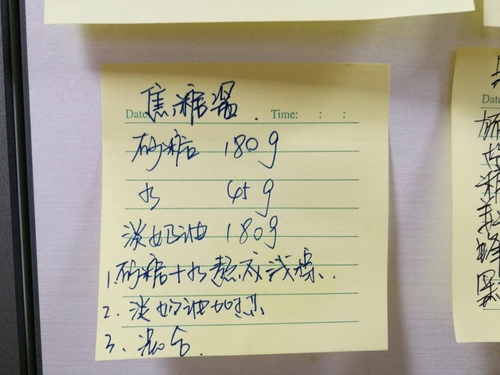 焦糖
Date: Time: : :
砂糖 180g
水 45g
淡奶油 180g
1.砂糖+水熬成浅棕.
2.淡奶油加热
3.混合.
Date